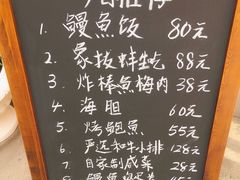 1. 鳗鱼饭 80元
2. 象拔蚌生吃 88元
3. 炸棒鱼梅肉 38元
4. 海胆 60元
5. 烤鲍鱼 55元
6. 严选和牛小排 128元
7. 自家制咸菜 28元
8. 鳗鱼